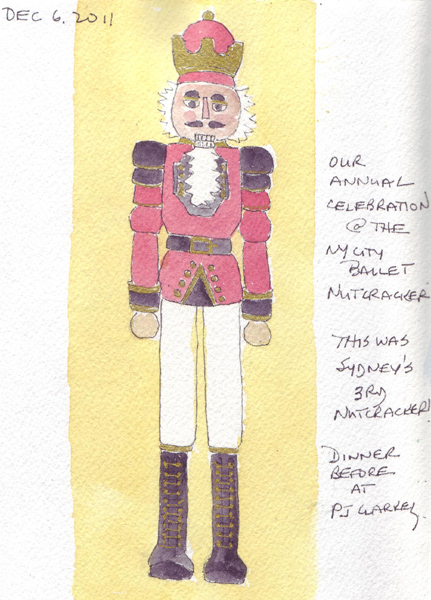 DEC 6, 2011
OUR
ANNUAL
CELEBRATION
@ THE
NY CITY
BALLET
NUTCRACKER
THIS WAS
SYDNEY'S
3RD
NUTCRACKER!
DINNER
BEFORE
AT
PJ CLARKES